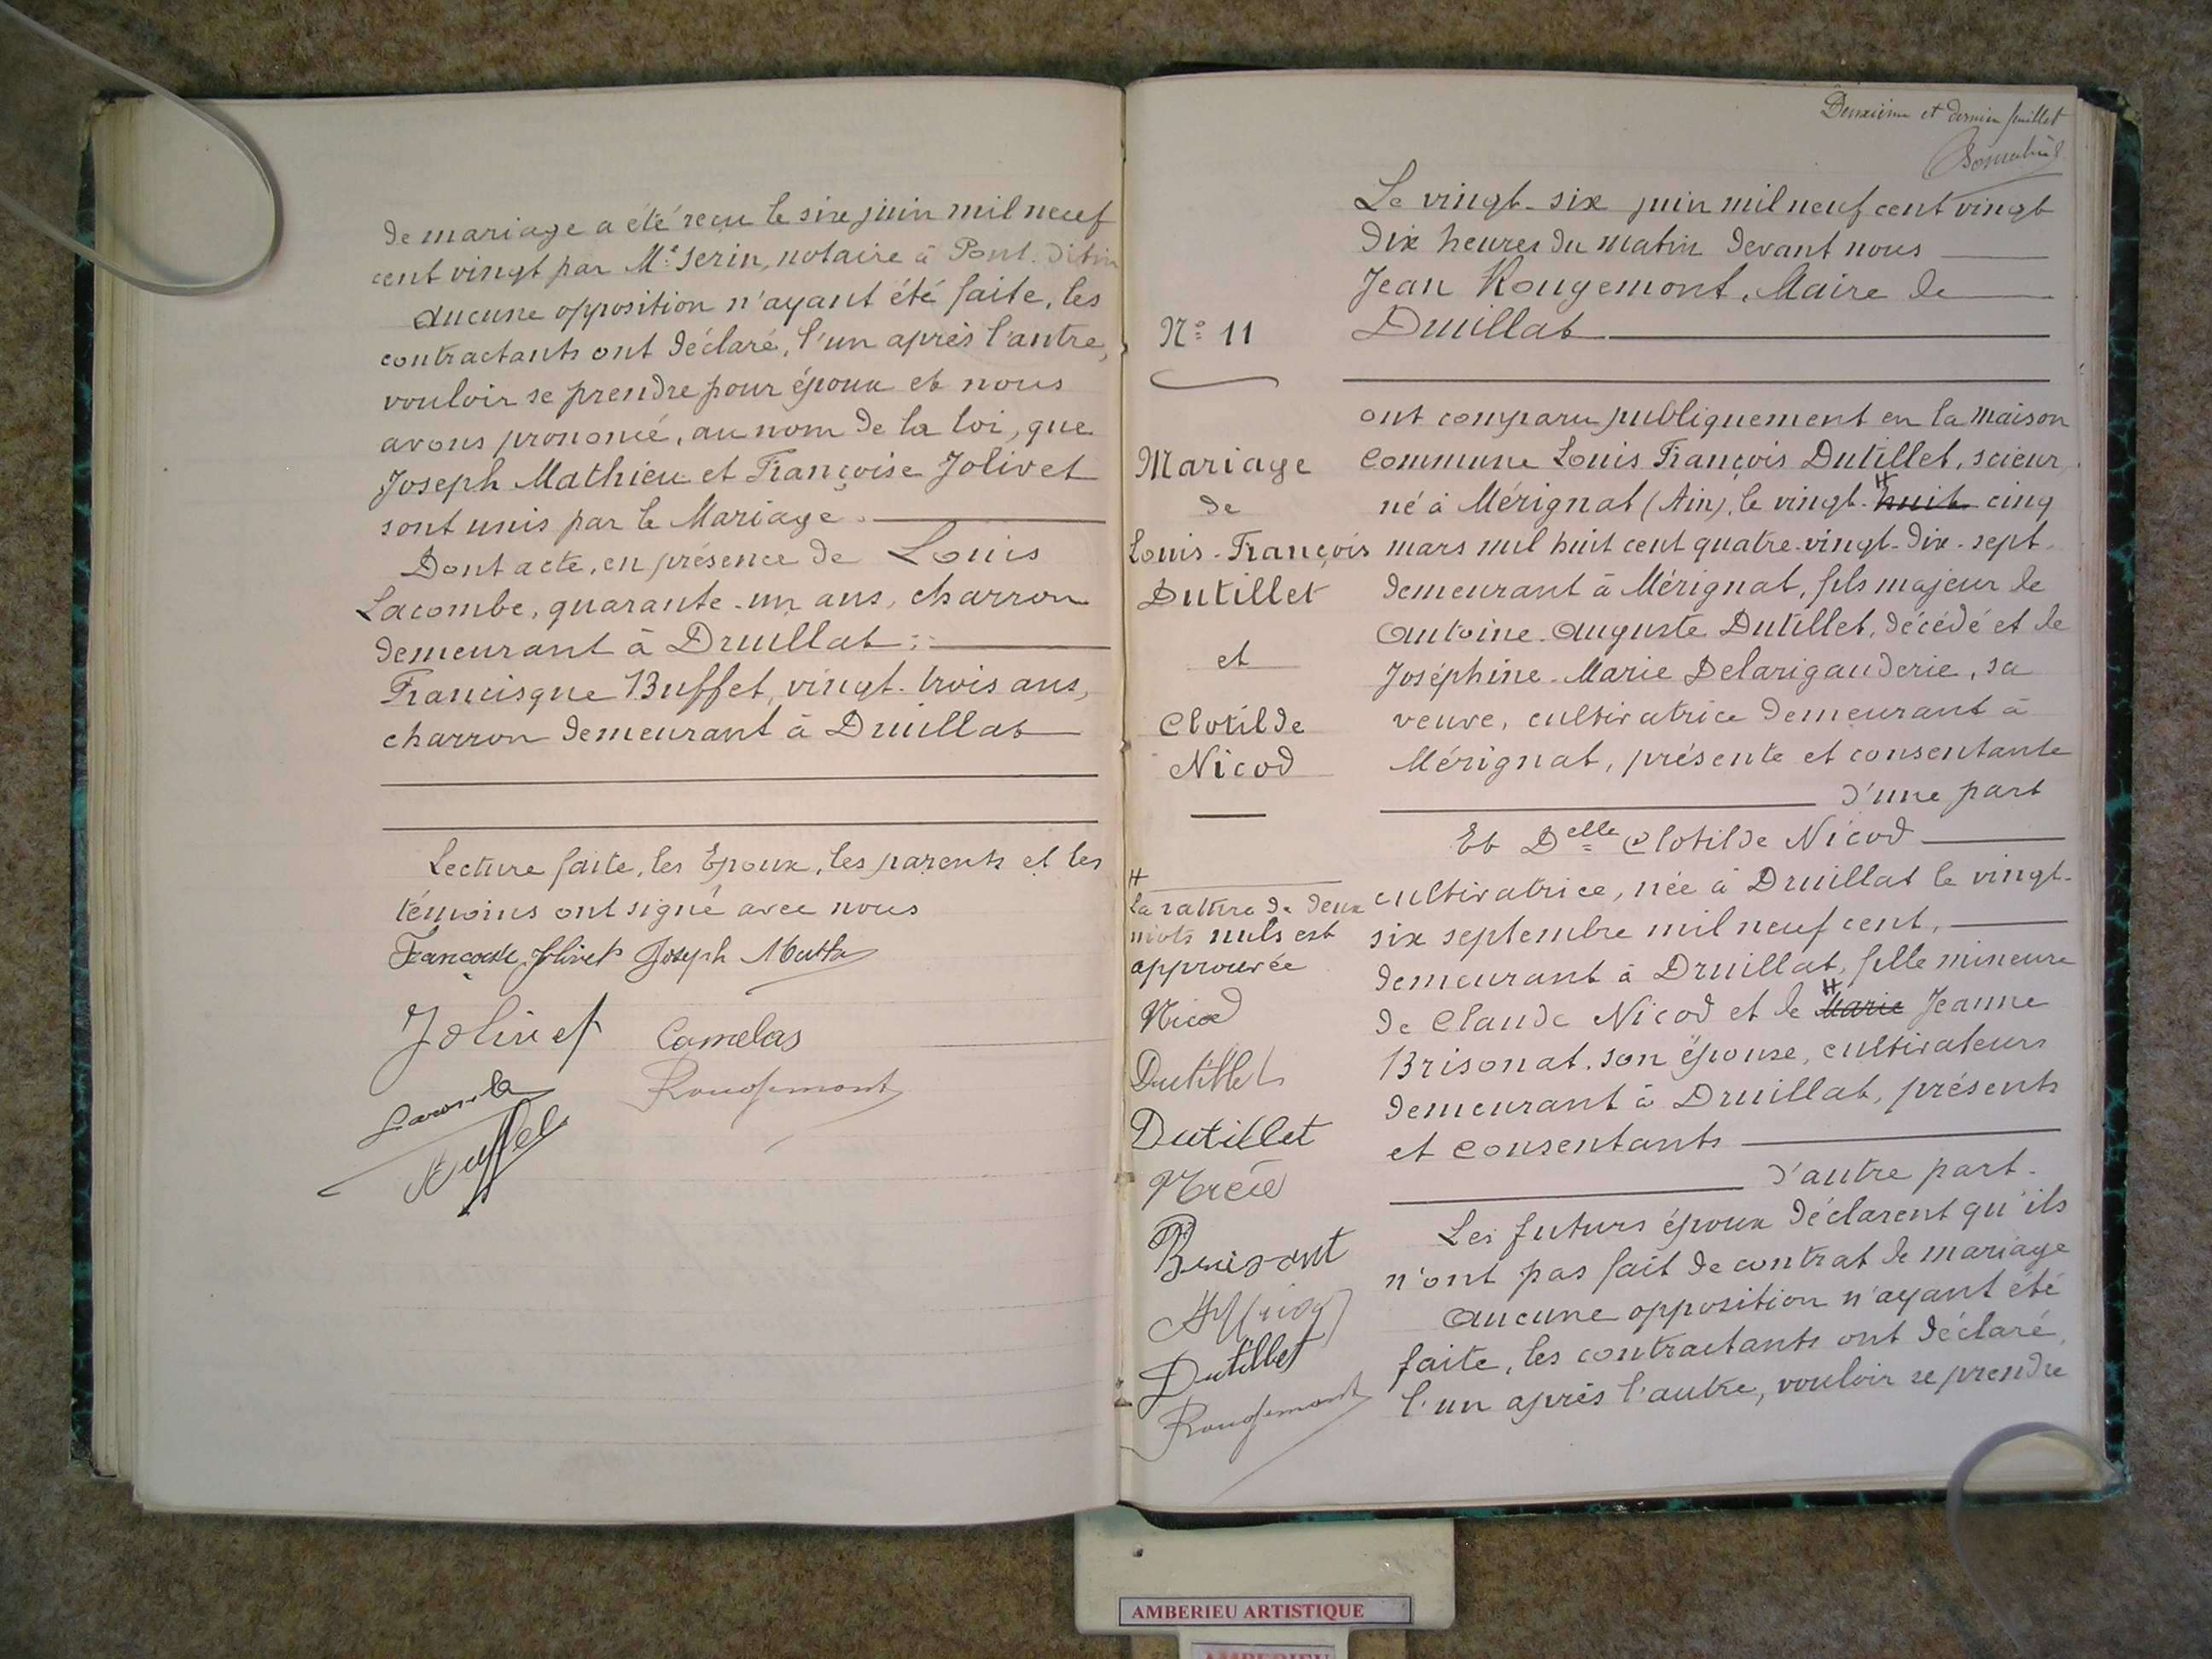 de mariage a été reçu le six juin mil neuf
cent vingt par Me Serin, notaire à Pont. d'Ain
Aucune opposition n'ayant été faite, les
contractants ont déclaré, l'un après l'autre,
vouloir se prendre pour époux et nous
avons prononcé, au nom de la loi, que
Joseph Mathieu et Françoise Jolivet
sont unis par le Mariage.
Dont acte, en présence de Louis
Lacombe, quarante-un ans, charron
demeurant à Druillat;
Francisque Buffet, vingt-trois ans,
charron demeurant à Druillat
Lecture faite, les Epoux, les parents et les
témoins ont signé avec nous
Françoise Jolivet Joseph
Jolivet Camelas
Rougemont
Buffet
Deuxième et dernier feuillet
Le vingt-six juin mil neuf cent vingt
dix heures du matin devant nous
Jean Rougemont, Maire de
Druillat
N° 11
Mariage
de
Louis-François
Dutillet
et
Clotilde
Nicod
ont comparu publiquement en la maison
commune Louis François Dutillet, scieur
né à Mérignat (Ain), le vingt-huit cinq
mars mil huit cent quatre-vingt-dix-sept
demeurant à Mérignat, fils majeur de
Antoine-Auguste Dutillet, décédé et de
Joséphine-Marie Delarigauderie, sa
veuve, cultivatrice demeurant à
Mérignat, présente et consentante
d'une part
Et Delle Clotilde Nicod
cultivatrice, née à Druillat le vingt-
six septembre mil neuf cent,
demeurant à Druillat, fille mineure
de Claude Nicod et de Marie Jeanne
Brisonat, son épouse, cultivateurs
demeurant à Druillat, présents
et consentants
d'autre part.
Les futurs époux déclarent qu'ils
n'ont pas fait de contrat de mariage
Aucune opposition n'ayant été
faite, les contractants ont déclaré,
l'un après l'autre, vouloir se prendre
La rature de deux
mots nuls est
approuvée
Nicod
Dutillet
Dutillet
Dutillet
Rougemont
AMBERIEU ARTISTIQUE
AMBERIEU